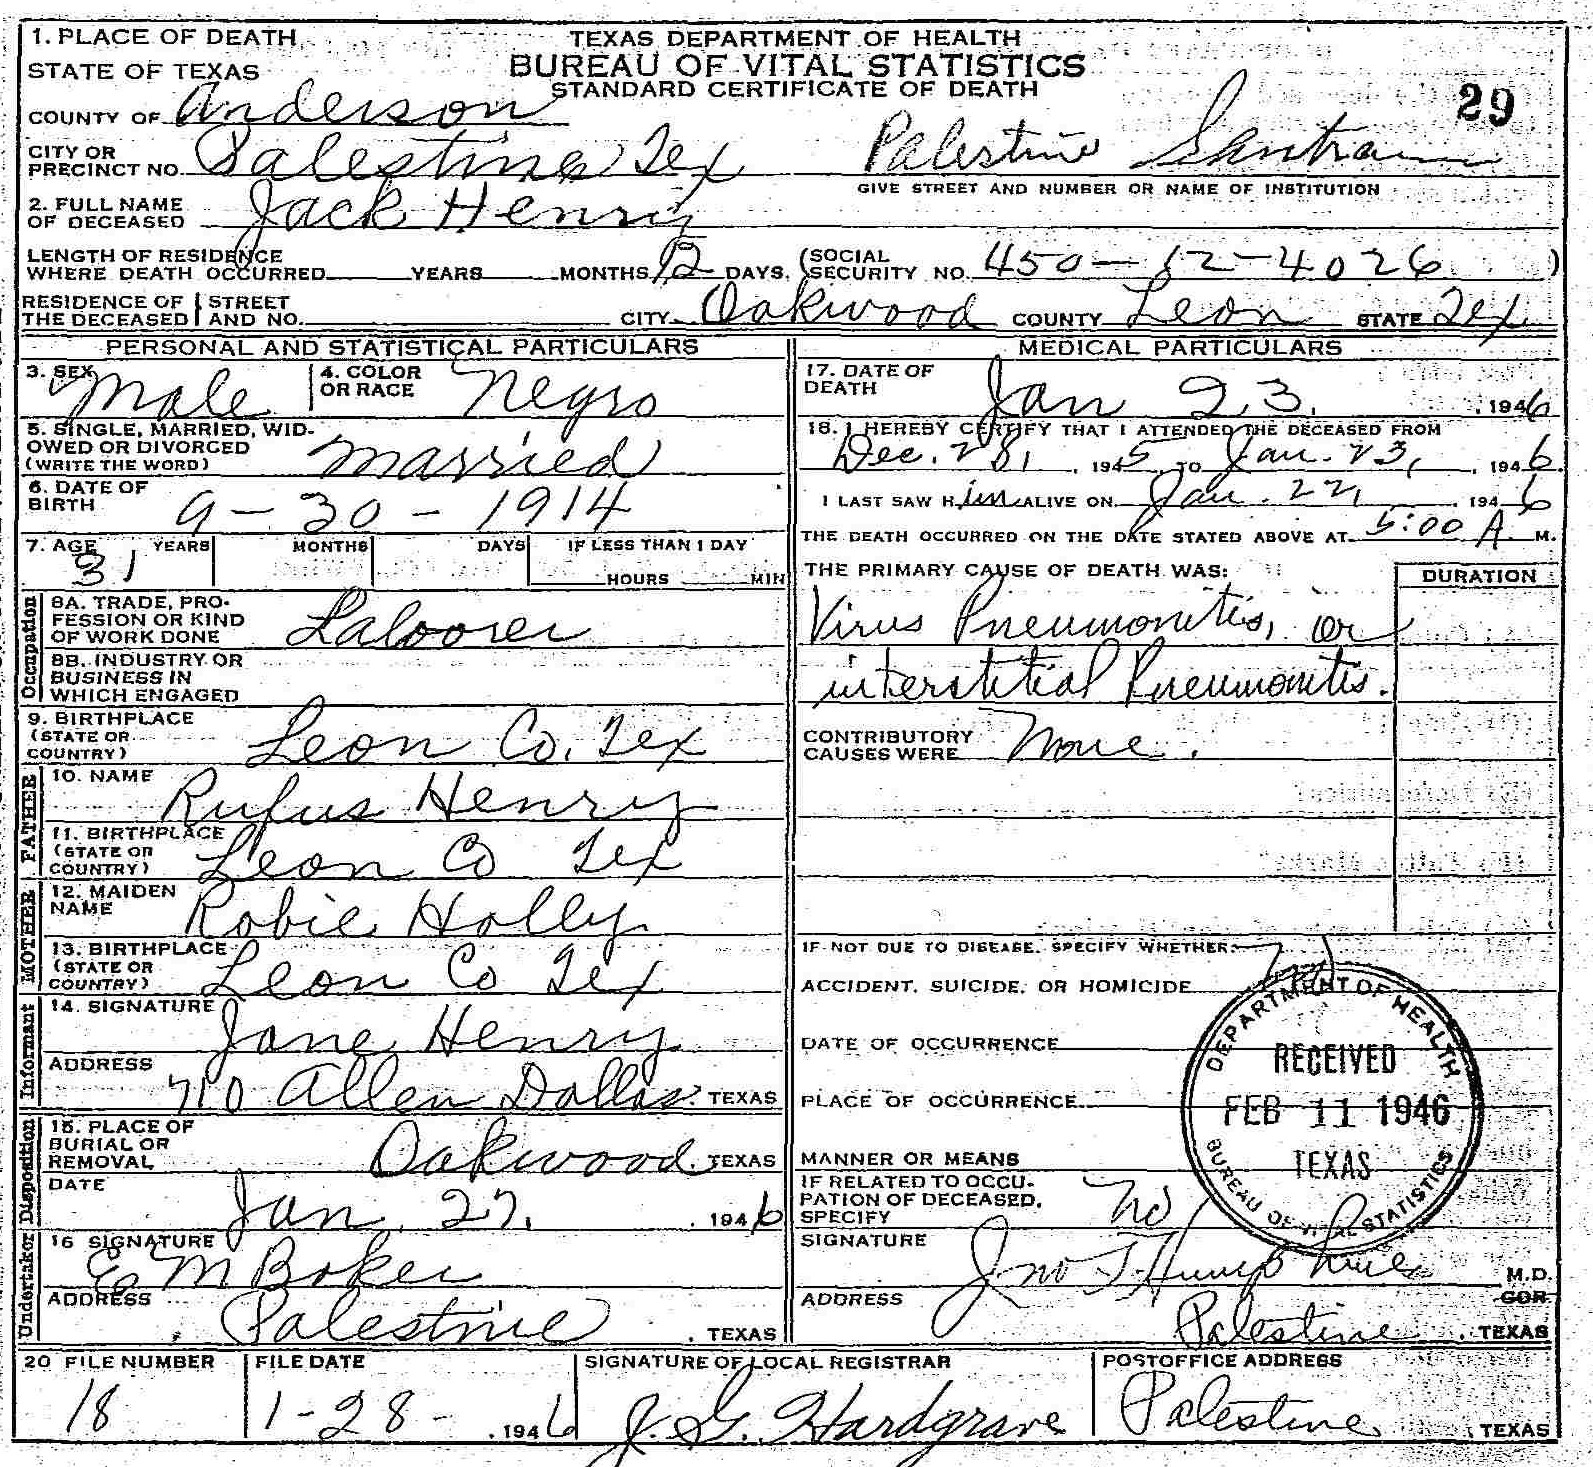 1. PLACE OF DEATH
STATE OF TEXAS
TEXAS DEPARTMENT OF HEALTH
BUREAU OF VITAL STATISTICS
STANDARD CERTIFICATE OF DEATH
29
COUNTY OF Anderson
CITY OR PRECINCT NO. Palestine Tex Palestine
GIVE STREET AND NUMBER OR NAME OF INSTITUTION
2. FULL NAME OF DECEASED Jack Henry
LENGTH OF RESIDENCE WHERE DEATH OCCURRED YEARS MONTHS 12 DAYS. (SOCIAL SECURITY NO. 450-12-4026)
RESIDENCE OF THE DECEASED STREET AND NO. CITY Oakwood COUNTY Leon STATE Tex
PERSONAL AND STATISTICAL PARTICULARS
3. SEX Male 4. COLOR OR RACE Negro
5. SINGLE, MARRIED, WIDOWED OR DIVORCED (WRITE THE WORD) Married
6. DATE OF BIRTH 9-30-1914
7. AGE YEARS MONTHS DAYS IF LESS THAN 1 DAY
31 HOURS MIN
Occupation
8A. TRADE, PROFESSION OR KIND OF WORK DONE Laborer
8B. INDUSTRY OR BUSINESS IN WHICH ENGAGED
9. BIRTHPLACE (STATE OR COUNTRY) Leon Co. Tex
FATHER
10. NAME Rufus Henry
11. BIRTHPLACE (STATE OR COUNTRY) Leon Co Tex
MOTHER
12. MAIDEN NAME Robie Holly
13. BIRTHPLACE (STATE OR COUNTRY) Leon Co Tex
Informant
14. SIGNATURE Jane Henry
ADDRESS 710 Allen Dallas. TEXAS
Disposition
15. PLACE OF BURIAL OR REMOVAL Oakwood. TEXAS
DATE Jan. 27. 1946
Undertaker
16 SIGNATURE E M Baker
ADDRESS Palestine. TEXAS
MEDICAL PARTICULARS
17. DATE OF DEATH Jan 23. 1946
18. I HEREBY CERTIFY THAT I ATTENDED THE DECEASED FROM
Dec. 28, 1945 TO Jan. 23, 1946.
I LAST SAW H im ALIVE ON Jan. 22, 1946
THE DEATH OCCURRED ON THE DATE STATED ABOVE AT 5:00 A. M.
THE PRIMARY CAUSE OF DEATH WAS: DURATION
Virus Pneumonitis, or
interstitial Pneumonitis.
CONTRIBUTORY CAUSES WERE None.
IF NOT DUE TO DISEASE, SPECIFY WHETHER:
ACCIDENT, SUICIDE, OR HOMICIDE
DATE OF OCCURRENCE
PLACE OF OCCURRENCE
MANNER OR MEANS
IF RELATED TO OCCUPATION OF DECEASED, SPECIFY No
SIGNATURE Jno T Humphries M.D.
ADDRESS Palestine. TEXAS
DEPARTMENT OF HEALTH
RECEIVED
FEB 11 1946
TEXAS
BUREAU OF VITAL STATISTICS
20 FILE NUMBER FILE DATE SIGNATURE OF LOCAL REGISTRAR POSTOFFICE ADDRESS
18 1-28-1946 J. G. Hardgrave Palestine, TEXAS